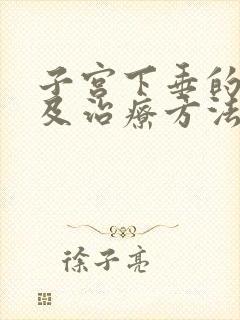 子宫下垂的
及治療方法
徐子亮